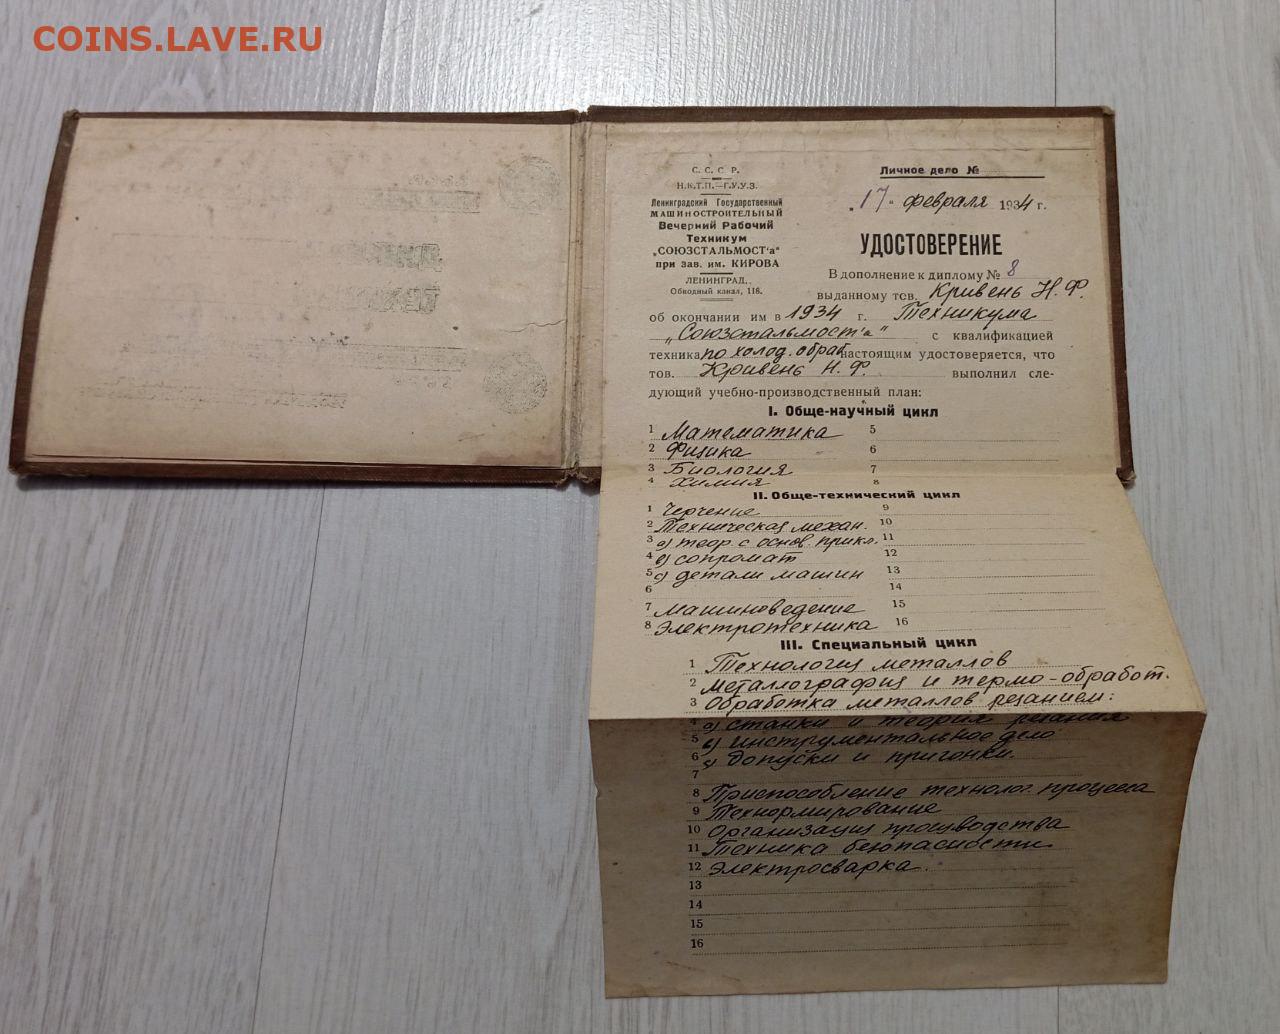 COINS.LAVE.RU
С. С. С. Р.
Н.К.Т.П.—Г.У.У.З.
Ленинградский Государственный
МАШИНОСТРОИТЕЛЬНЫЙ
Вечерний Рабочий
Техникум
„СОЮЗСТАЛЬМОСТ'а"
при зав. им. КИРОВА
ЛЕНИНГРАД.
Обводный канал, 118.
Личное дело №
„17" февраля 1934 г.
УДОСТОВЕРЕНИЕ
В дополнение к диплому № 8
выданному тов. Кривень Н. Ф.
об окончании им в 1934 г. Техникума
„Союзстальмост'а" с квалификацией
техника по холод. обраб. настоящим удостоверяется, что
тов. Кривень Н. Ф. выполнил сле-
дующий учебно-производственный план:
I. Обще-научный цикл
1 Математика 5
2 Физика 6
3 Биология 7
4 Химия 8
II. Обще-технический цикл
1 Черчение 9
2 Техническая механ. 10
3 а) теор. с основ. прикл. 11
4 в) сопромат 12
5 с) детали машин 13
6 14
7 Машиноведение 15
8 Электротехника 16
III. Специальный цикл
1 Технология металлов
2 Металлография и термо-обработ.
3 Обработка металлов резанием:
4 а) станки и теория резания
5 в) инструментальное дело
6 с) допуски и пригонки.
7
8 Приспособление технолог. процесса
9 Технормирование
10 Организация производства
11 Техника безопасности
12 Электросварка.
13
14
15
16